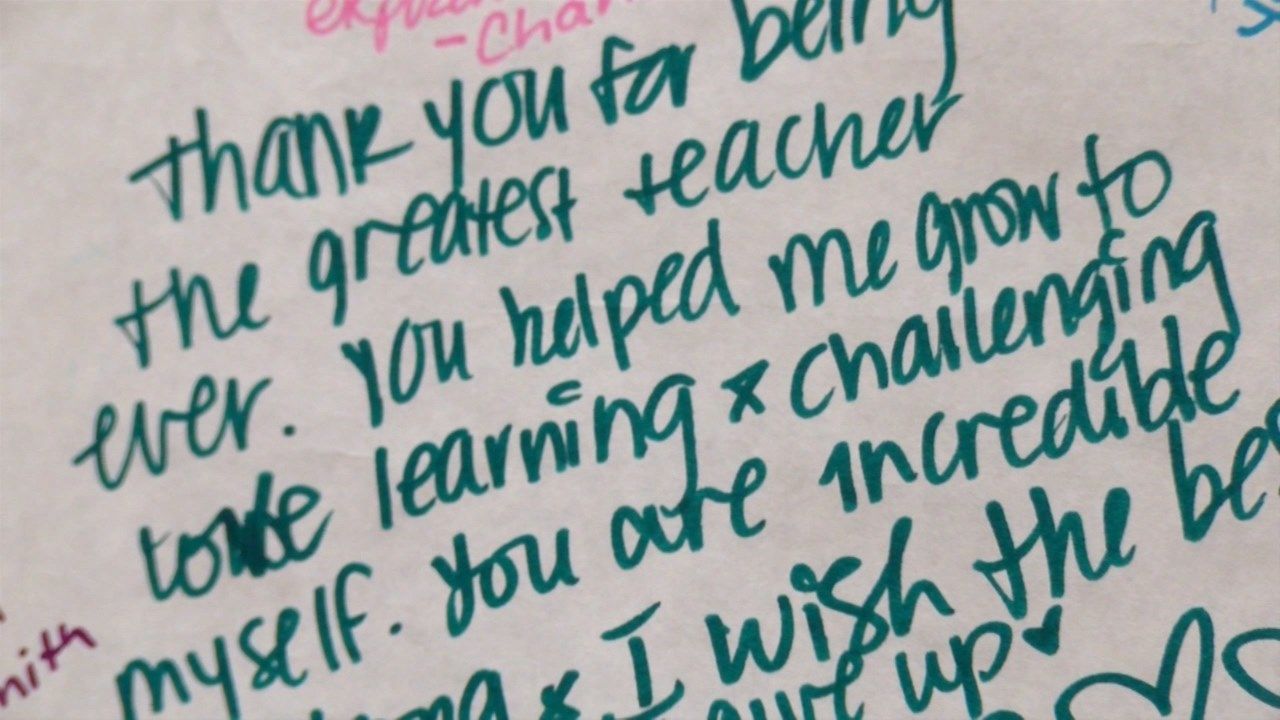 thank you for being
the greatest teacher
ever. you helped me grow to
learning & challenging
myself. you are incredible
& I wish the
up